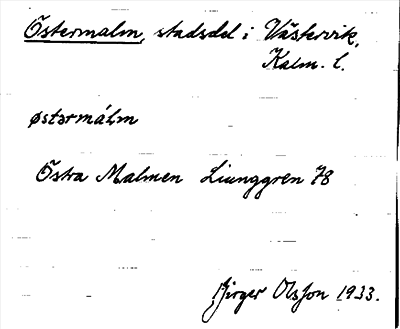 Östermalm, stadsdel i Västervik,
Kalm. l.
østərmálm
Östra Malmen Liunggren 78
Birger Olsson 1933.